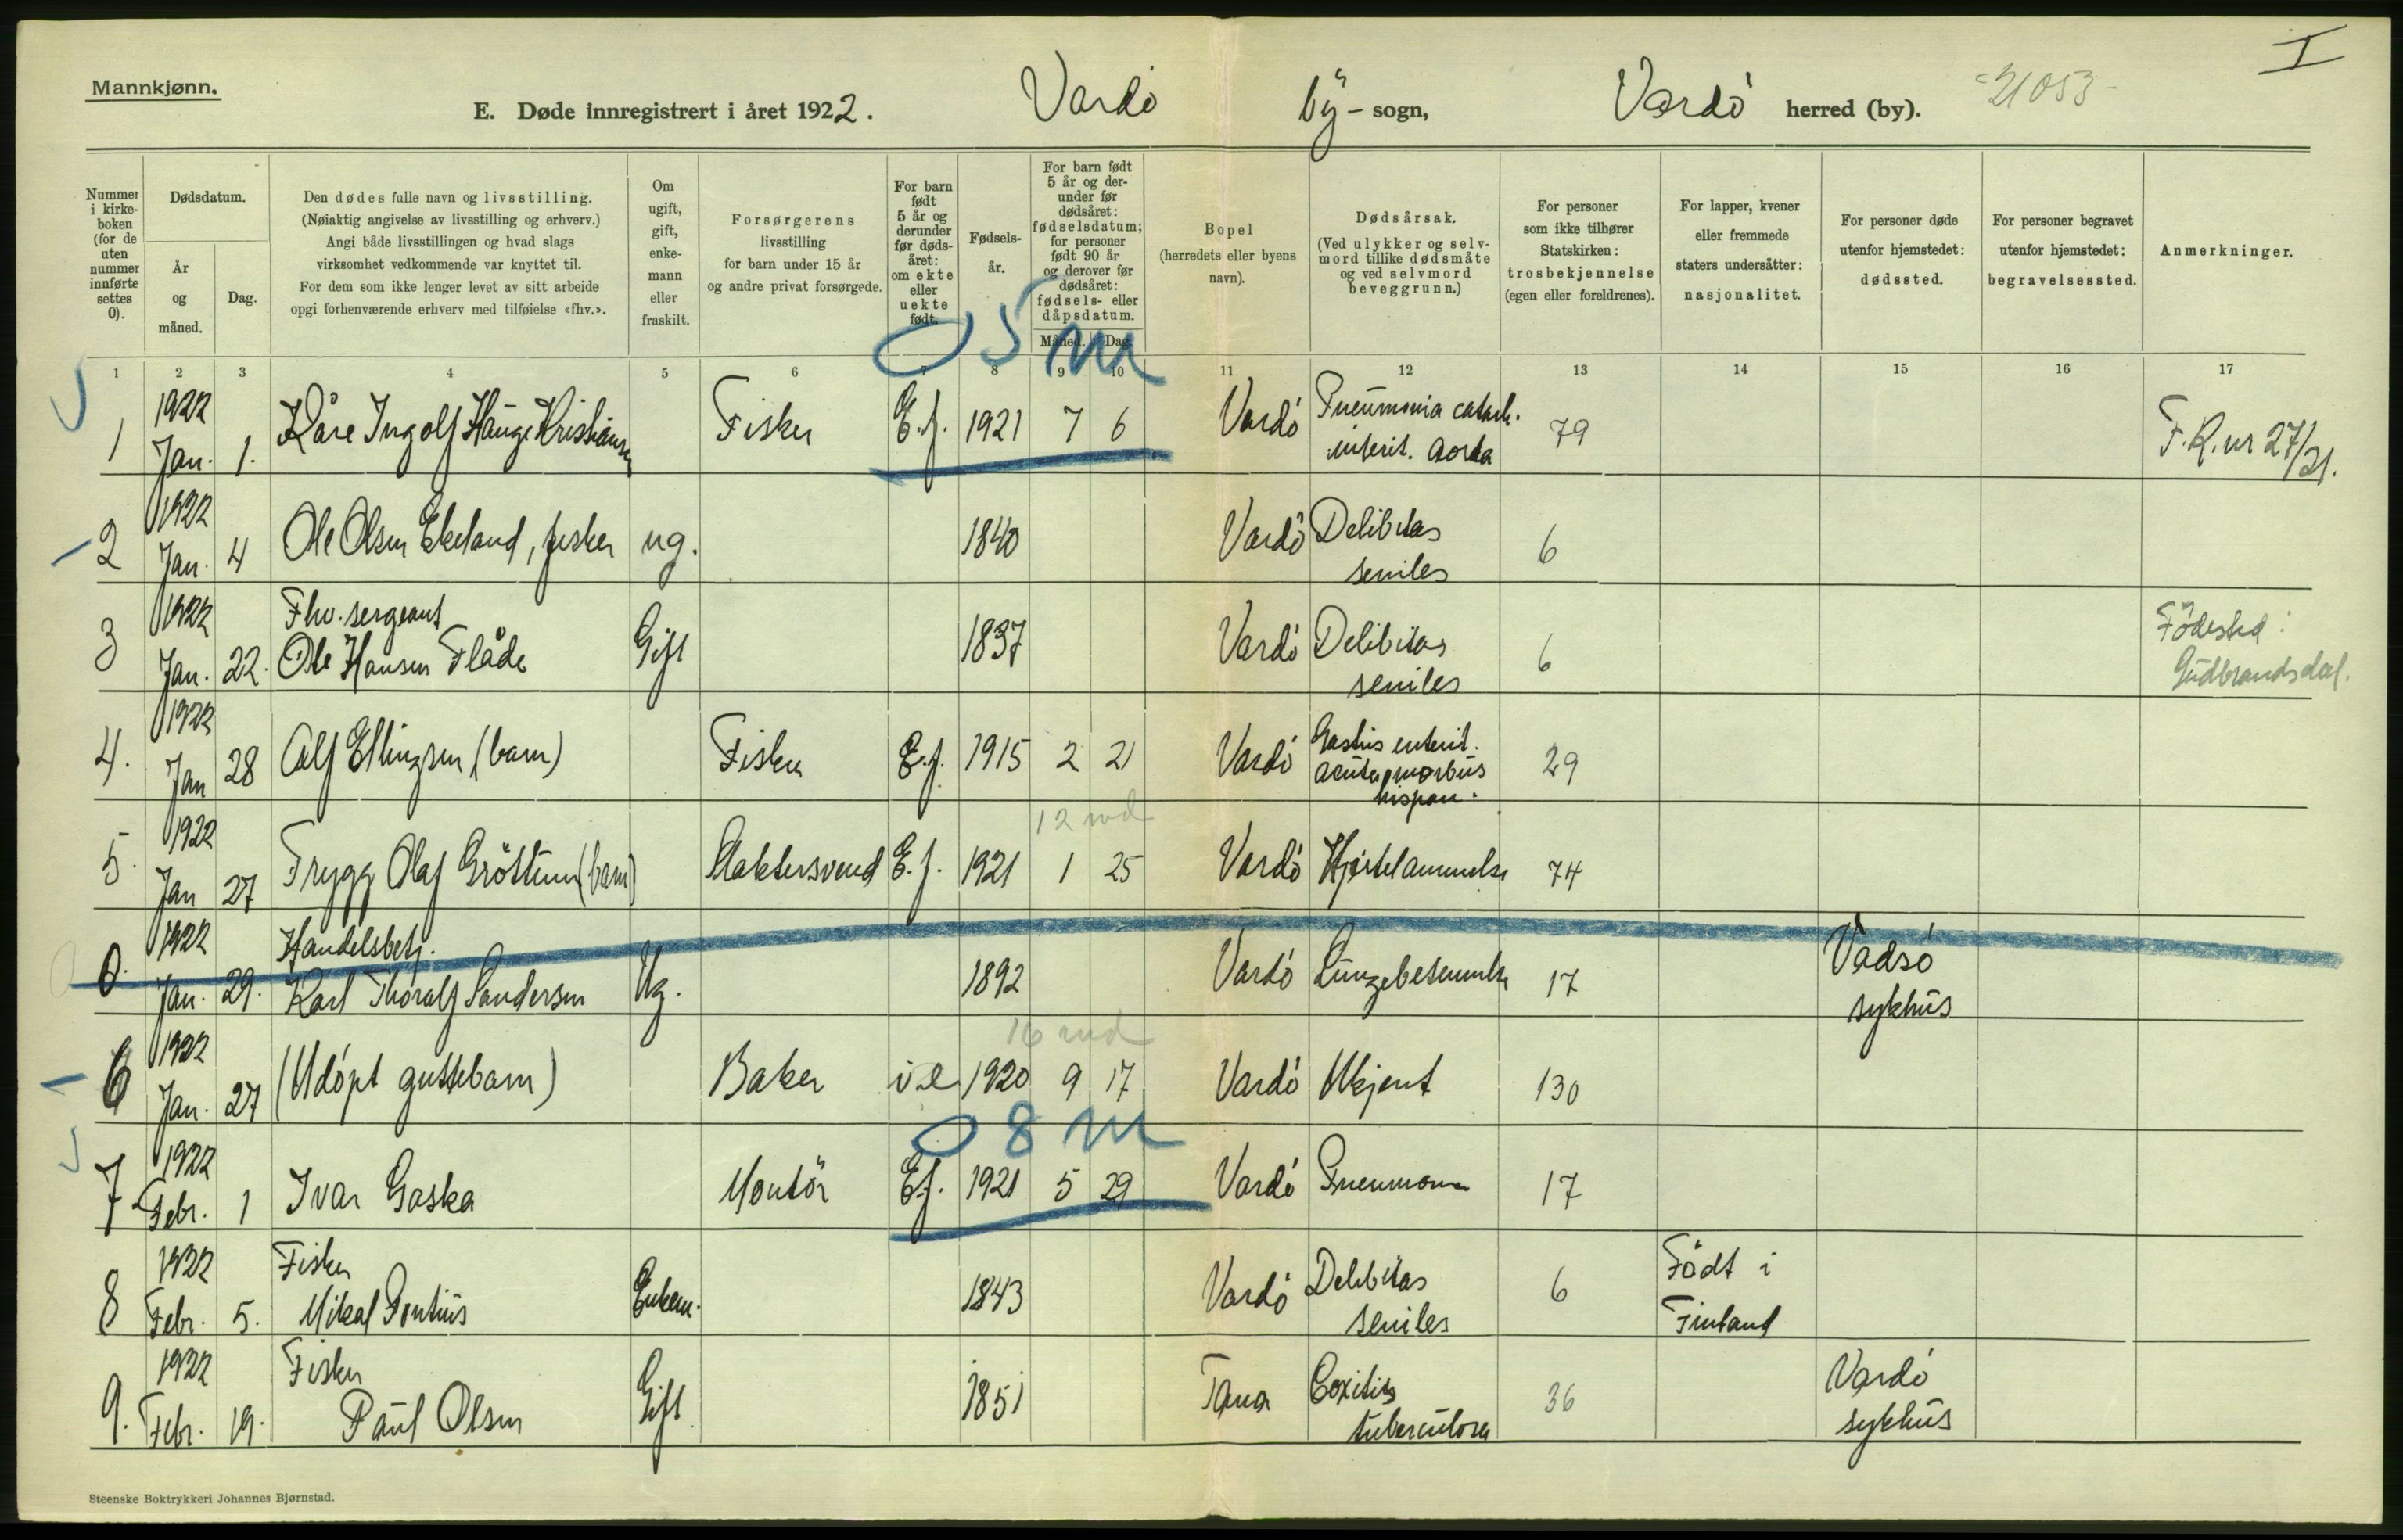 Mannkjønn.
E. Døde innregistrert i året 1922. Vardö by- sogn, Vardö herred (by). 21053 I
Nummer i kirkeboken (for de uten nummer innførte settes 0).
Dødsdatum.
År og måned.
Dag.
Den dødes fulle navn og livsstilling.
(Nøiaktig angivelse av livsstilling og erhverv.)
Angi både livsstillingen og hvad slags
virksomhet vedkommende var knyttet til.
For dem som ikke lenger levet av sitt arbeide
opgi forhenværende erhverv med tilføielse «fhv.».
Om ugift, gift, enkemann eller fraskilt.
Forsørgerens
livsstilling
for barn under 15 år
og andre privat forsørgede.
For barn født 5 år og derunder før dødsåret: om ekte eller uekte født.
Fødselsår.
For barn født 5 år og derunder før dødsåret: fødselsdatum; for personer født 90 år og derover før dødsåret: fødsels- eller dåpsdatum.
Måned. Dag.
Bopel
(herredets eller byens
navn).
Dødsårsak.
(Ved ulykker og selvmord tillike dødsmåte og ved selvmord beveggrunn.)
For personer
som ikke tilhører
Statskirken:
trosbekjennelse
(egen eller foreldrenes).
For lapper, kvener
eller fremmede
staters undersåtter:
nasjonalitet.
For personer døde
utenfor hjemstedet:
dødssted.
For personer begravet
utenfor hjemstedet:
begravelsessted.
Anmerkninger.
1 2 3 4 5 6 7 8 9 10 11 12 13 14 15 16 17
0 5 m
1 1922 Jan. 1. Kåre Ingolf Hauge Kristiansen Fisker E.f. 1921 7 6 Vardö Pneumonia catarh. interit. aorta 79 F.R. nr 27/21.
2 1922 Jan. 4 Ole Olsen Ekeland, fisker ug. 1840 Vardö Delibitas seniles 6
3 1922 Jan. 22. Fhv. sergeant Ole Hansen Flåde Gift 1837 Vardö Delibitas seniles 6 Födested: Gudbrandsdal.
4. 1922 Jan 28 Alf Ellingsen (barn) Fisker E.f. 1915 2 21 Vardö enterit. acuta morbus hispan. 29
12 md
5. 1922 Jan 27 Trygg Olaf Gröttum (barn) Slaktersvend E.f. 1921 1 25 Vardö Hjertelammelse 74
0. 1922 Jan. 29. Handelsbetj. Karl Thoralf Sandersen Ug. 1892 Vardö Lungebetennelse 17 Vadsö sykhus
16 md
6 1922 Jan. 27 (Udöpt guttebarn) Baker u.e 1920 9 17 Vardö Ukjent 130
0 8 m
7. 1922 Febr. 1 Ivar Gaska Montör E.f. 1921 5 29 Vardö Pneumonia 17
8 1922 Febr. 5. Fisker Mikal Pontius Enkem. 1843 Vardö Delibitas seniles 6 Födt i Finland
9. 1922 Febr. 19. Fisker Paul Olsen Gift 1851 Tana Coxitis tuberculosa 36 Vardö sykhus
Steenske Boktrykkeri Johannes Bjørnstad.